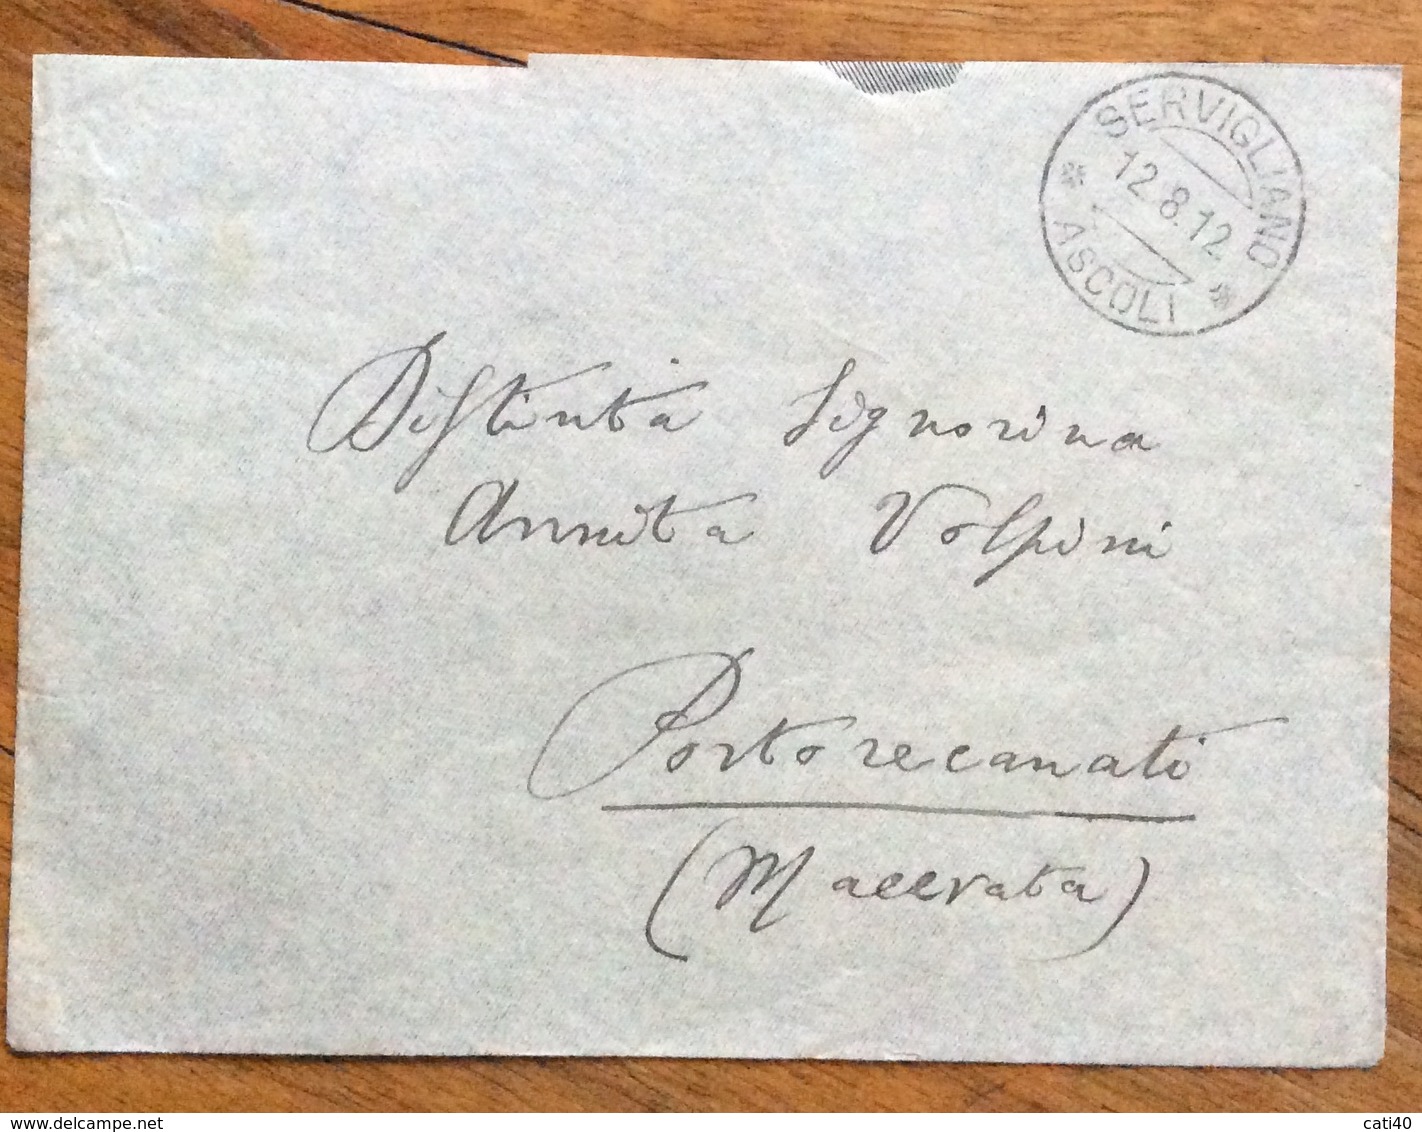 SERVIGLIANO
12.8.12
ASCOLI
Distinta Signorina
Annita Volpini
Portorecanati
(Macerata)
delcampe.net
cati40